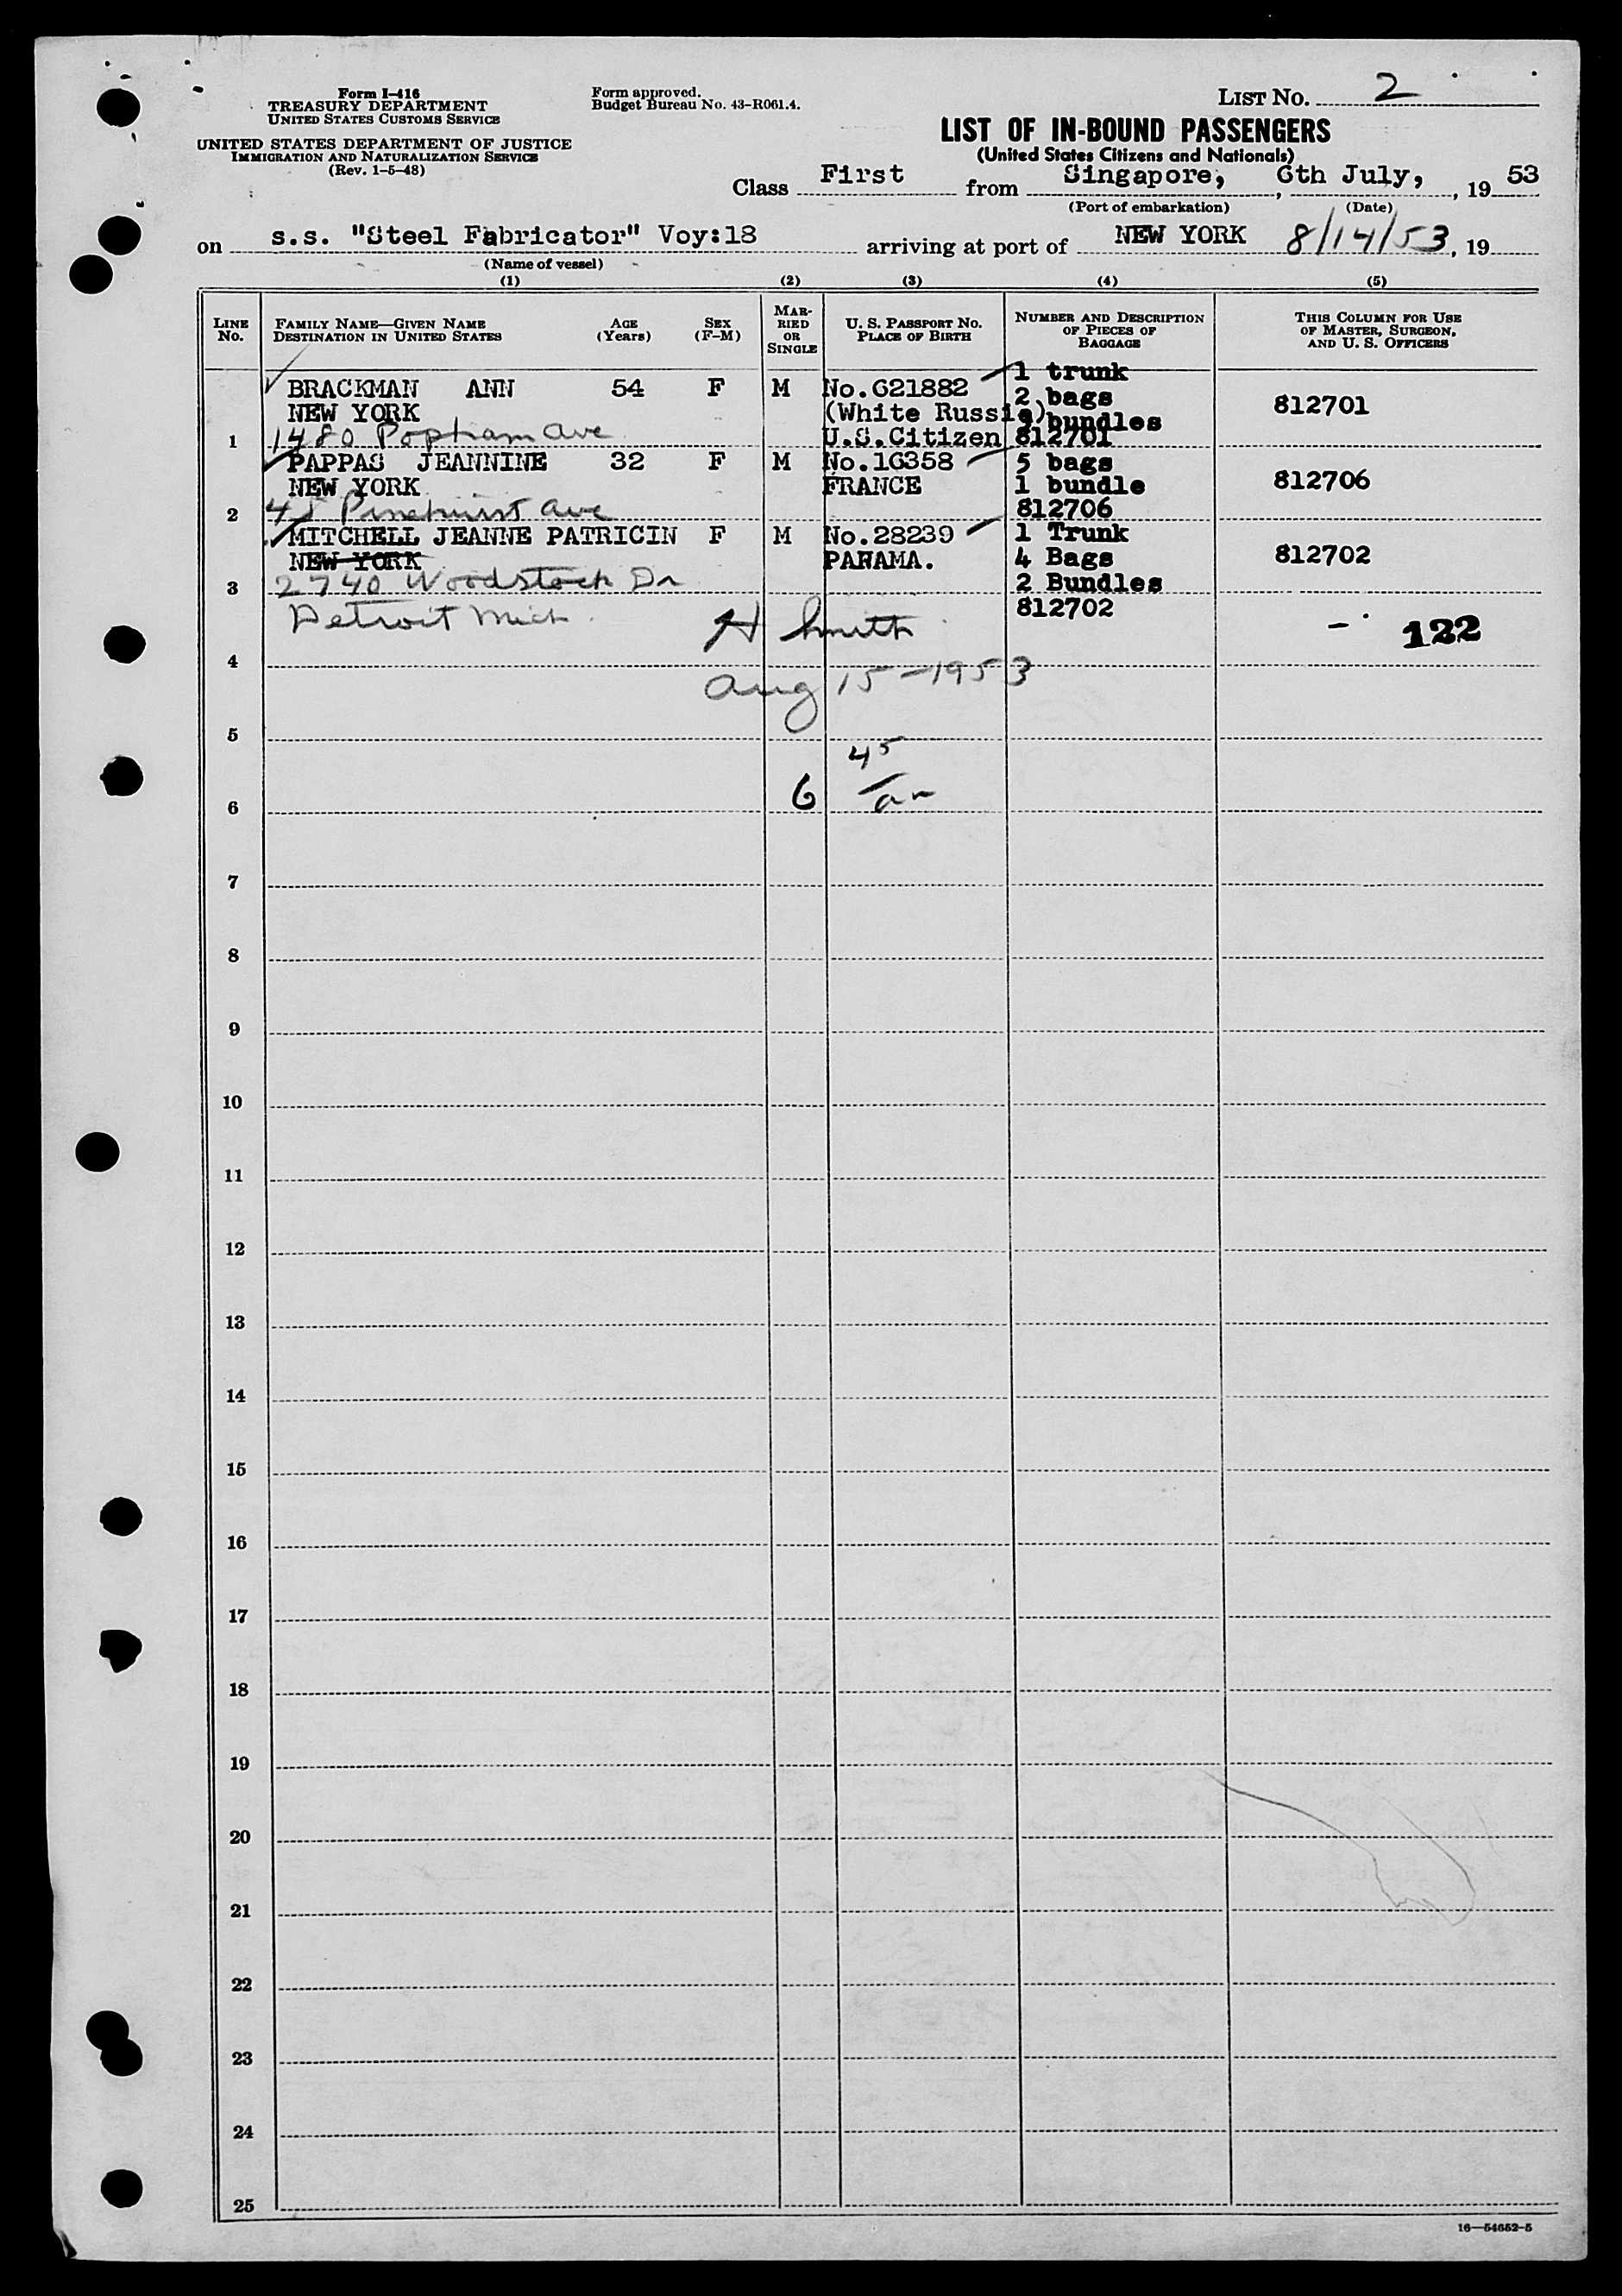 Form I-416
TREASURY DEPARTMENT
UNITED STATES CUSTOMS SERVICE
UNITED STATES DEPARTMENT OF JUSTICE
IMMIGRATION AND NATURALIZATION SERVICE
(Rev. 1-5-48)
Form approved.
Budget Bureau No. 43-R061.4.
LIST No. 2
LIST OF IN-BOUND PASSENGERS
(United States Citizens and Nationals)
Class First from Singapore, 6th July, , 19 53
(Port of embarkation) (Date)
on s.s. "Steel Fabricator" Voy:18 arriving at port of NEW YORK 8/14/53, 19
(Name of vessel)
(1) (2) (3) (4) (5)
LINE No.
FAMILY NAME—GIVEN NAME
DESTINATION IN UNITED STATES
AGE (Years)
SEX (F-M)
MARRIED OR SINGLE
U. S. PASSPORT No.
PLACE OF BIRTH
NUMBER AND DESCRIPTION OF PIECES OF BAGGAGE
THIS COLUMN FOR USE OF MASTER, SURGEON, AND U. S. OFFICERS
BRACKMAN ANN 54 F M No.621882 1 trunk
NEW YORK (White Russia) 2 bags 812701
1 1480 Popham Ave U.S.Citizen bundles
812701
PAPPAS JEANNINE 32 F M No.16358 5 bags
NEW YORK FRANCE 1 bundle 812706
2 45 Pinehurst Ave 812706
MITCHELL JEANNE PATRICIN F M No.28239 1 Trunk
NEW YORK PANAMA. 4 Bags 812702
3 2740 Woodstock Dr 2 Bundles
Detroit Mich. 812702
H Smith 122
4
Aug 15-1953
5
45
6 6
7
8
9
10
11
12
13
14
15
16
17
18
19
20
21
22
23
24
25
16—54652-5